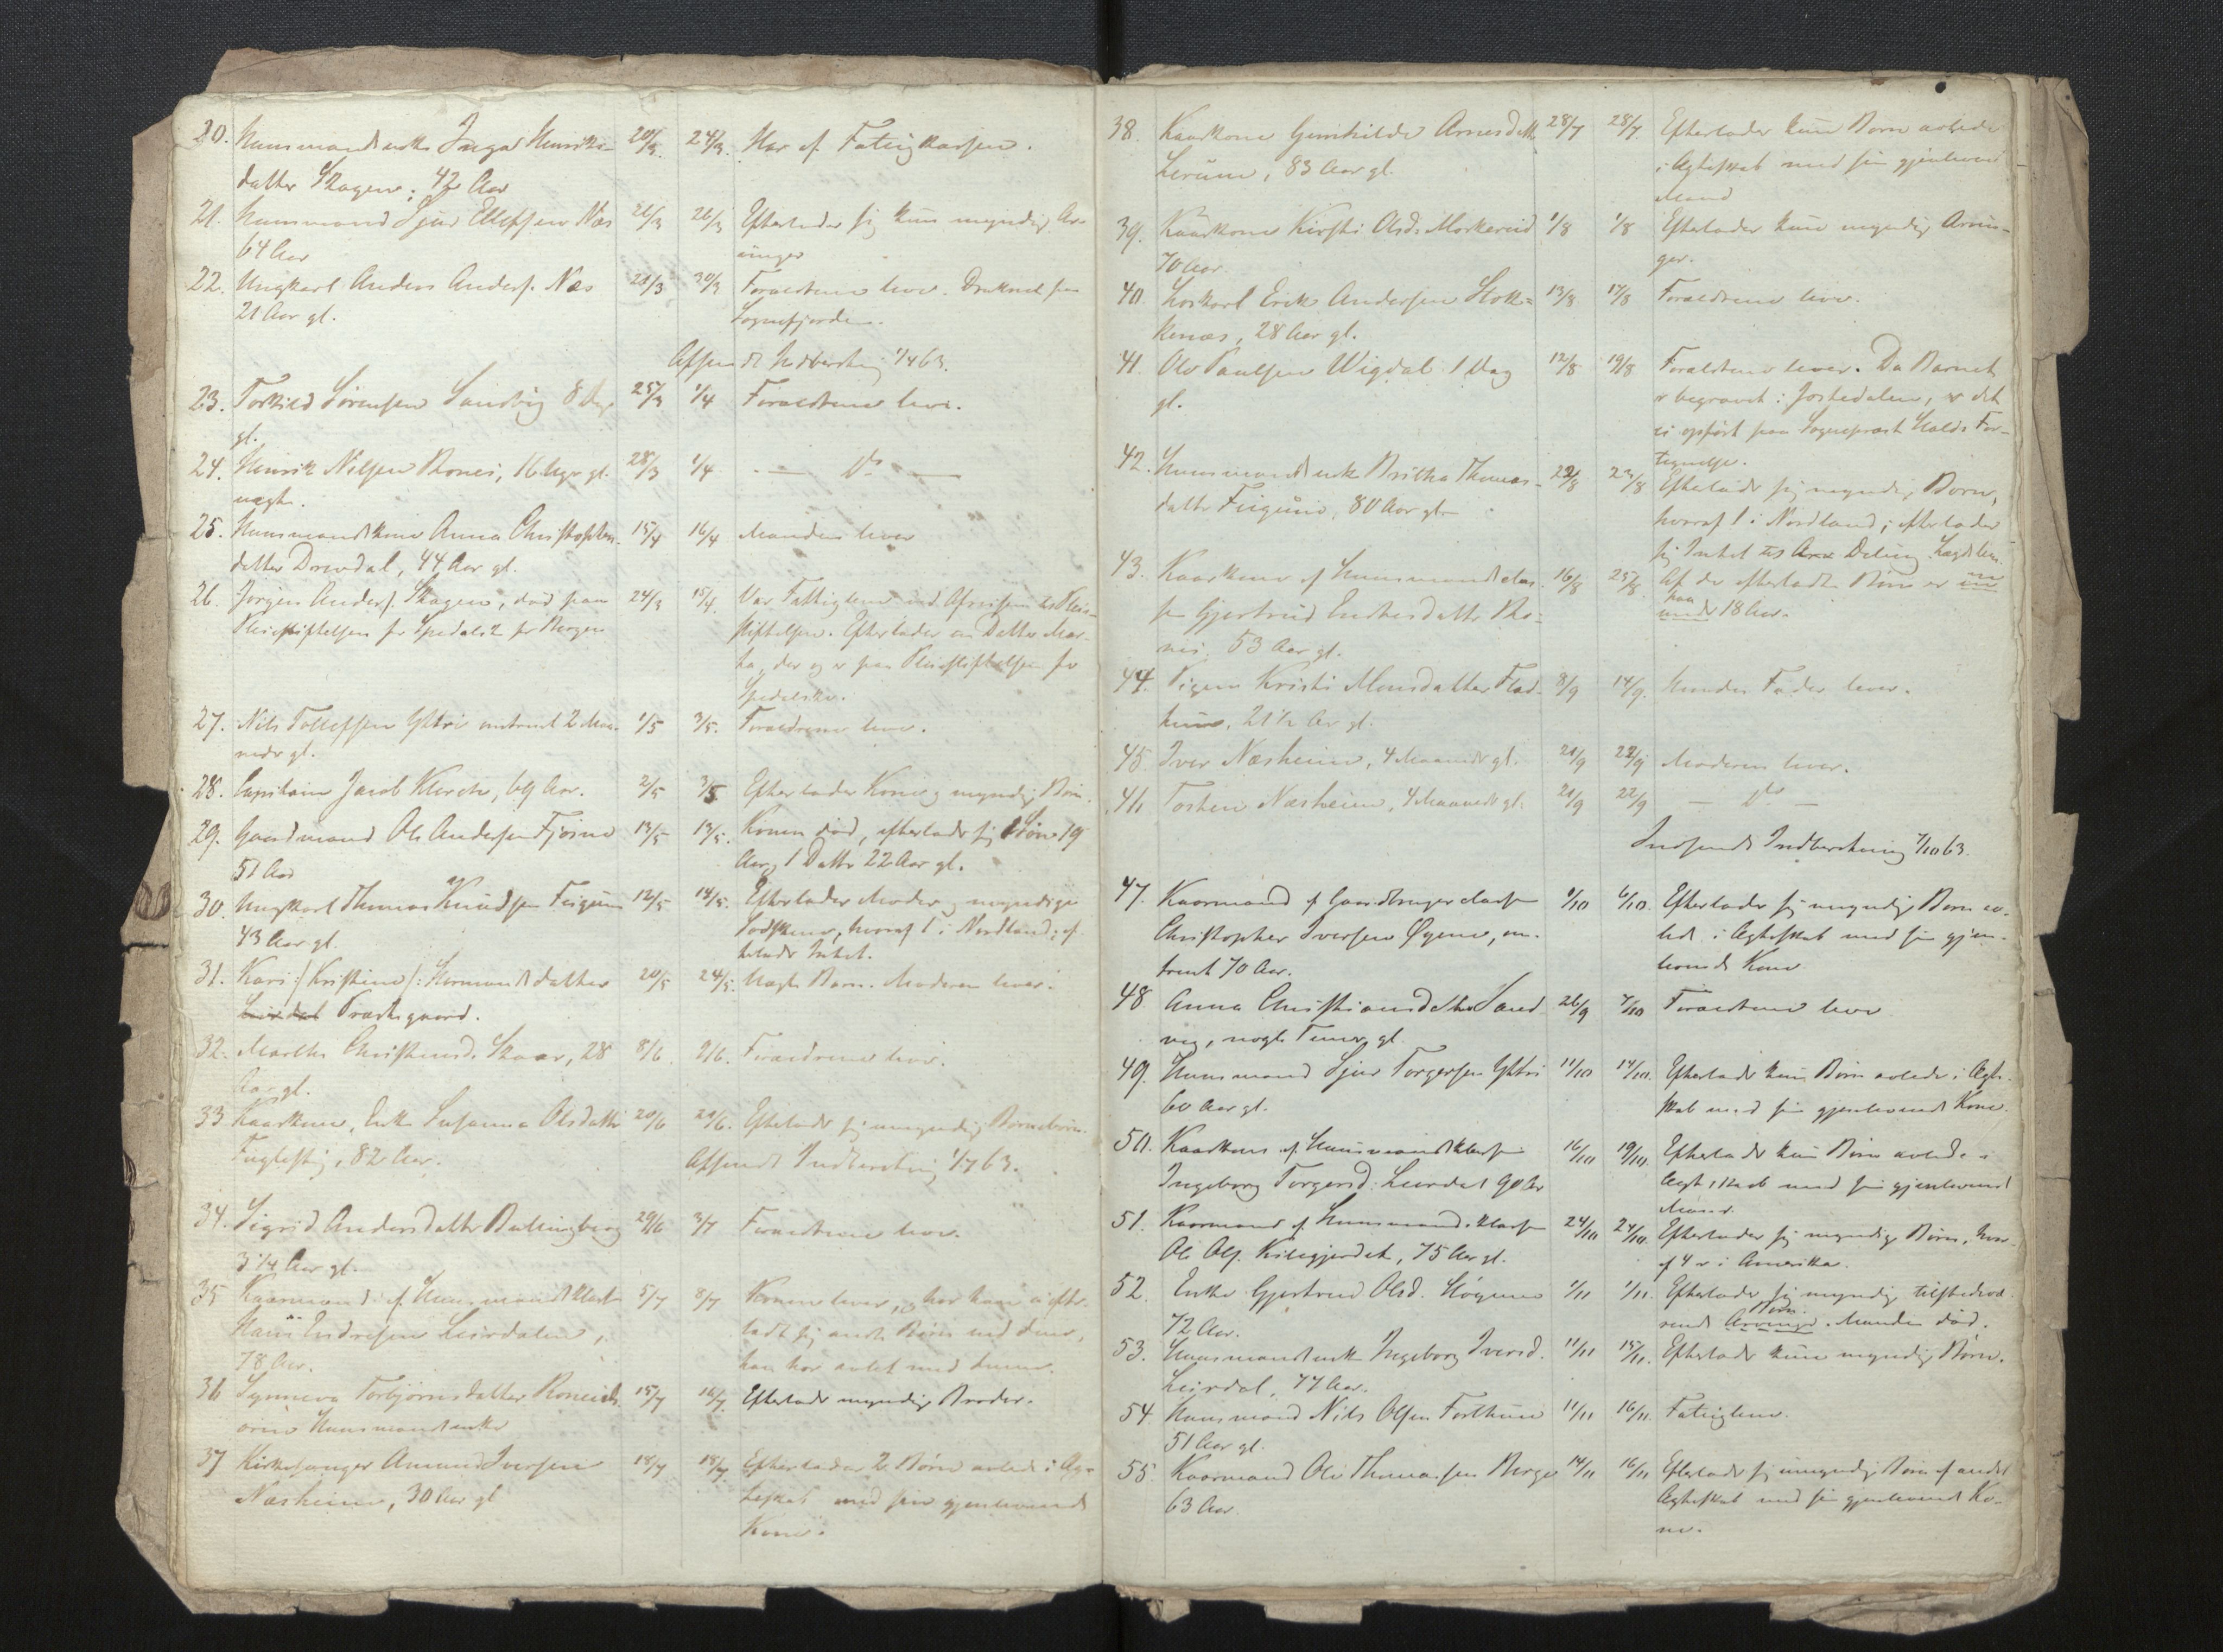 20. Huusmandsenke Inga Henriks- 20/3. 24/3. Var af Fatigkassen.
datter Skagen, 42 Aar
21. Huusmand Sjur Ellefsen Næs 21/3 26/3 Efterlader sig kun myndige Ar-
64 Aar vinger
22. Ungkarl Anders Anders. Næs 21/3 30/3 Forældrene leve. Druknet paa
21 Aar gl. Sognefjorden.
Afsendt Indberetning 1/4 63.
23. Torkild Sørensen Sandvig 8 Dage 25/3 1/4 Forældrene leve.
gl.
24. Henrik Nilsen Rones, 16 Uger gl. 28/3 1/4 — do —
uægte.
25. Huusmandskone Anna Christophers- 15/4 16/4 Manden lever
datter Drevdal, 44 Aar gl.
26. Jørgen Anders. Skagen, død paa 24/3 15/4. Var Fattiglem ved Afreisen til Pleie-
Pleiestiftelsen for Spedalsk for Bergen stiftelsen. Efterlader en Datter Mar-
ta, der og er paa Pleiestiftelsen for
Spedalske.
27. Nils Tollefsen Yttri omtrent 2 Maa- 1/5 3/5. Forældrene leve.
neder gl.
28. Capitain Jacob Klerck, 69 Aar. 2/5 3/5 Efterlader Kone og myndige Børn.
29. Gaardmand Ole Andersen Fjøsne 13/5 13/5. Konen død, efterlader sig 1 Søn 19
51 Aar Aar, 1 Datter 22 Aar gl.
30. Ungkarl Thomas Knudsen Feigum 12/5 14/5. Efterlader Moder og myndige
43 Aar gl. Sødskene, hvoraf 1 i Nordland; ef-
terlader Intet.
31. Kari /: Kristine :/ Hermundsdatter 20/5 24/5. Uægte Barn. Moderen lever.
Leirdal Præstegaard.
32. Marthe Christensd. Skaar, 28 8/6. 9/6. Forældrene leve.
Aar gl.
33 Kaarkone, Enke Susanna Olsdatter 20/6 21/6. Efterlader sig umyndige Børnebørn.
Fuglestig, 82 Aar.
Afsendt Indberetning 1/7 63.
34. Sigrid Andersdatter Bolingberg 29/6 3/7 Forældrene leve.
3 1/4 Aar gl.
35 Kaarmand af Huusmandsklassen 5/7 8/7 Konen lever, har han ei efter-
Hans Endresen Leirdalen, ladt sig andre Børn end dem,
78 Aar. han har avlet med denne.
36 Synneva Torbjørnsdatter Roneid 15/7 16/7. Efterlader myndige Brødre.
Huusmandsenke
37 Kirkesanger Amund Iversen 18/7 18/7. Efterlader 2 Børn avlede i Æg-
Næsheim, 30 Aar gl teskab med sin gjenlevende
Kone.
38. Kaarkone Gunhilde Arnesdatter 28/7 28/7 Efterlader kun Børn avlede
Lerum, 83 Aar gl. i Ægteskab med sin gjenlevende
Mand
39. Kaarkone Kirsti Olsd. Morkereid 1/8 1/8 Efterlader kun myndige Arvin-
70 Aar. ger.
40. Løskarl Erik Andersen Stok- 13/8 17/8 Forældrene leve.
kenæs, 28 Aar gl.
41. Ole Paulsen Wigdal 1 Dag 12/8 19/8 Forældrene lever. Da Barnet
gl. er begravet i Jostedalen, er det
ei opført paa Sogneprest Halds For-
tegnelse.
42. Huusmandsenke Britha Thomas- 22/8 23/8 Efterlader sig myndige Børn,
datter Feigum, 80 Aar gl. hvoraf 1 i Nordland; efterlader
sig Intet til Deling. Lægdslem
43. Kaarkone af Huusmandsclas- 16/8 25/8. Af de efterladte Børn er
sen Gjertrud Endresdatter Ro- under 18 Aar.
nei. 53 Aar gl.
44. Pigen Kristi Monsdatter Flad- 8/9 14/9. Hendes Fader lever.
heim, 21 1/2 Aar gl.
45. Iver Næsheim, 4 Maaneder gl. 21/9 22/9 Moderen lever.
Torsten Næsheim, 4 Maaneder gl. 21/9 22/9 — do —
Indsendt Indberetning 7/10 63.
47. Kaarmand af Gaardbrugerclassen 1/10 6/10. Efterlader sig myndige Børn av-
Christopher Iversen Øyene, om- lede i Ægteskab med sin gjen-
trent 70 Aar. levende Kone
48. Anna Christiansdatter Sand- 26/9 7/10 Forældrene leve
vig, nogle Timer gl.
49. Huusmand Sjur Torgersen Yttri 11/10 14/10. Efterlader kun Børn avlede i Ægte-
60 Aar gl. skab med sin gjenlevende Kone.
50. Kaarkone af Huusmandsklassen 16/10 19/10. Efterlader kun Børn avlede i
Ingeborg Torgersd. Leirdal 90 Ar Ægteskab med sin gjenlevende
Mand.
51. Kaarmand af Huusmandsklassen 24/10 24/10. Efterlader sig myndige Børn, hvor-
Ole Ols. Kilegjerdet, 75 Aar gl. af 4 er i Amerika.
52. Enke Gjertrud Olsd. Høgum 1/11 1/11. Efterlader sig myndige tilstedevæ-
72 Aar. rende Arvinger Børn. Manden død.
53. Huusmandsenke Ingeborg Iversd. 11/11 15/11. Efterlader kun myndige Børn.
Leirdal, 77 Aar.
54. Huusmand Nils Olsen Forthun 11/11 16/11. Fatiglem.
51 Aar gl.
55. Kaarmand Ole Thomassen Berge 14/11 16/11 Efterlader sig umyndige Børn af andet
63 Aar. Ægteskab med sin gjenlevende Ko-
ne.